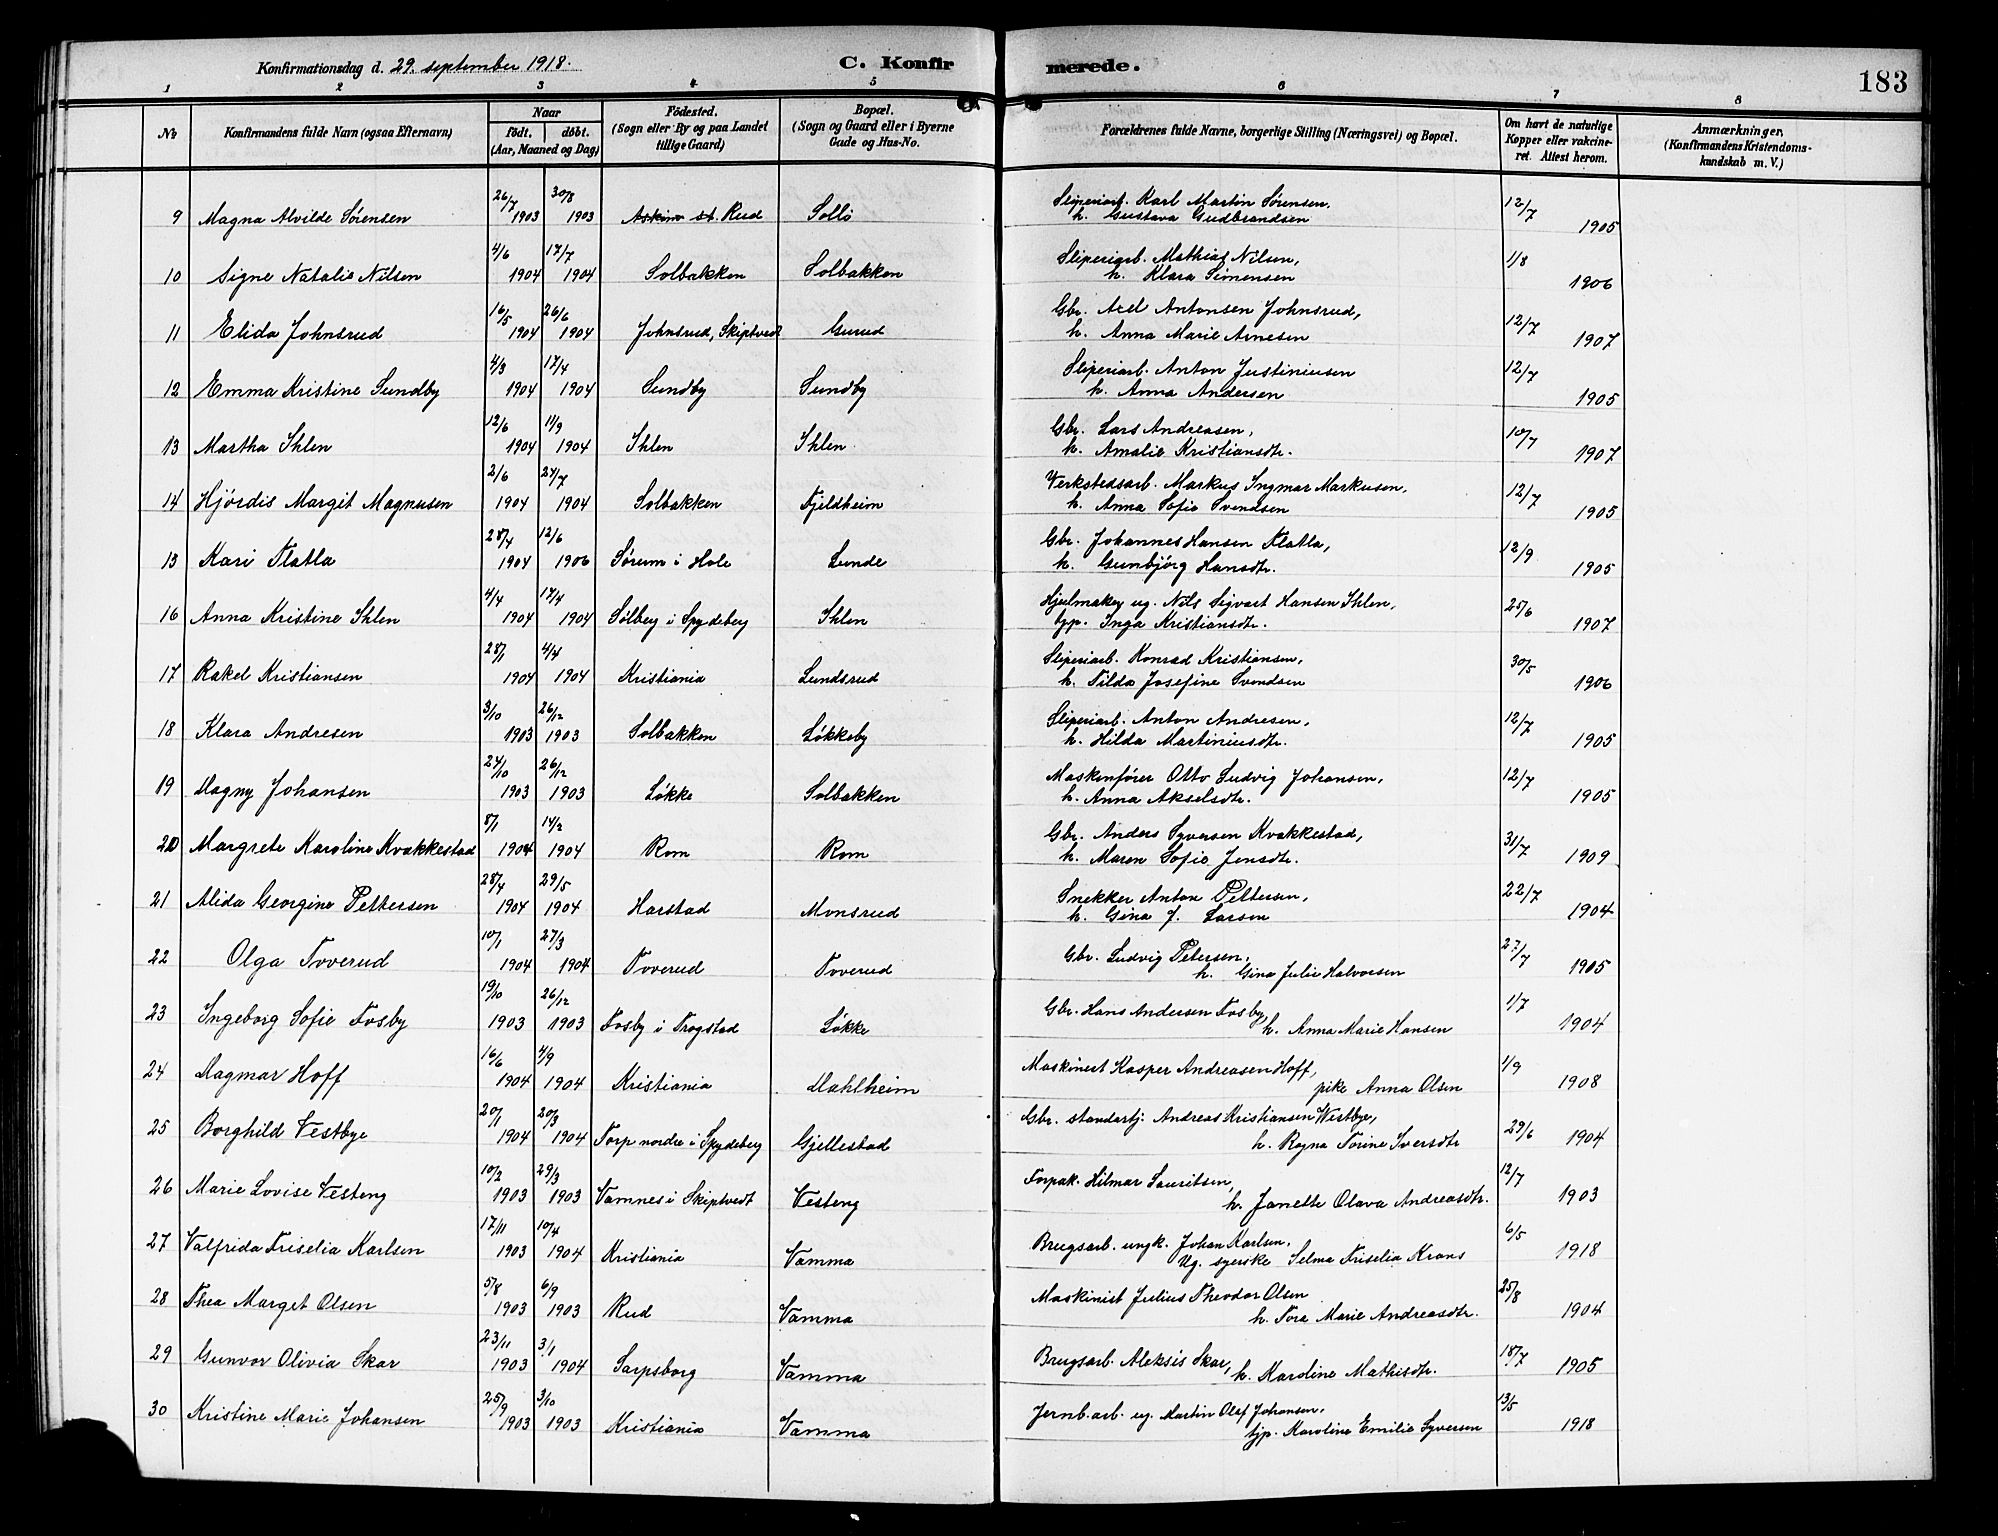 Konfirmationsdag d. 29. september 1918.
C. Konfirmerede.
183
1 2 3 4 5 6 7 8
No
Konfirmandens fulde Navn (ogsaa Efternavn)
Naar
födt. döbt.
(Aar, Maaned og Dag)
Födested.
(Sogn eller By og paa Landet
tillige Gaard)
Bopæl.
(Sogn og Gaard eller i Byerne
Gade og Hus-No.
Forældrenes fulde Navne, borgerlige Stilling (Næringsvei) og Bopæl.
Om havt de naturlige
Kopper eller vakcine-
ret. Attest herom.
Anmærkninger,
(Konfirmandens Kristendoms-
kundskab m. V.)
9 Magna Alvilde Sørensen 26/7 1903 30/8 1903 Askim st. Rud Sollö Sliperiarb. Karl Martin Sørensen, 12/7 1905
h. Gustava Gudbrandsen
10 Signe Natalie Nilsen 4/6 1904 17/7 1904 Solbakken Solbakken Sliperiarb. Mathias Nilsen, 1/8 1906
h. Klara Simensen
11 Elida Johnsrud 16/5 1904 26/6 1904 Johnsrud, Skiptvedt Gurud Gbr. Axel Antonsen Johnsrud, 12/7 1907
h. Anna Marie Arnesen
12 Emma Kristine Sundby 4/3 1904 17/4 1904 Sundby Sundby Sliperiarb. Anton Justiniusen 12/7 1905
h. Anna Andersen
13 Martha Ihlen 12/6 1904 11/9 1904 Ihlen Ihlen Gbr. Lars Andreasen, 10/7 1907
h. Amalie Kristiansdtr.
14 Hjördis Margit Magnusen 2/6 1904 24/7 1904 Solbakken Fjeldheim Verkstedsarb. Markus Ingmar Markusen, 12/7 1905
h. Anna Sofie Svendsen
15 Kari Flatla 28/4 1904 12/6 1906 Sørum i Hole Lunde Gbr. Johannes Hansen Flatla, 12/9 1905
h. Gunbjörg Hansdtr.
16 Anna Kristine Ihlen 4/4 1904 17/4 1904 Sølberg i Spydeberg Ihlen Hjulmaker ug. Nils Sigvart Hansen Ihlen, 25/6 1907
tjp. Inga Kristiansdtr.
17 Rakel Kristiansen 28/1 1904 4/4 1904 Kristiania Lundsrud Sliperiarb. Konrad Kristiansen, 30/5 1906
h. Tilda Josefine Svendsen
18 Klara Andresen 3/10 1903 26/12 1903 Solbakken Løkkeby Sliperiarb. Anton Andresen, 12/7 1905
h. Hilda Martiniusdtr.
19 Dagny Johansen 24/10 1903 26/12 1903 Løkke Solbakken Maskenfører Otto Ludvig Johansen, 12/7 1905
h. Anna Akselsdtr.
20 Margrete Karoline Kvakkestad 8/1 1904 14/2 1904 Rom Rom Gbr. Anders Syversen Kvakkestad, 31/7 1909
h. Maren Sofie Jensdtr.
21 Alida Georgine Pettersen 28/4 1904 29/5 1904 Harstad Monsrud Snekker Anton Pettersen, 22/7 1904
h. Gina J. Larsen
22 Olga Toverud 10/1 1904 27/3 1904 Toverud Toverud Gbr. Ludvig Petersen, 27/7 1905
h. Gina Julie Halvorsen
23 Ingeborg Sofie Fosby 19/10 1903 26/12 1903 Fosby i Trogstad Løkke Gbr. Hans Andersen Fosby, 1/7 1904
h. Anna Marie Hansen
24 Dagmar Hoff 16/6 1904 4/9 1904 Kristiania Dahlheim Maskinist Kasper Andreasen Hoff, 1/9 1908
pike Anna Olsen
25 Borghild Vestbye 20/1 1904 20/3 1904 Torp nordre i Spydeberg Gjellestad Gbr. standartj. Andreas Kristiansen Westbye, 29/6 1904
h. Ragna Torine Iversdtr
26 Marie Lovise Vesteng 10/2 1903 29/3 1903 Vamnes i Skiptvedt Vesteng Forpak. Hilmar Lauritsen, 12/7 1903
h. Janette Olava Andreasdtr.
27 Valfrida Friselia Karlsen 17/11 1903 10/4 1904 Kristiania Vamma Brugsarb. ungk. Johan Karlsen, 6/5 1918
Ug. syerske Selma Friselia Krans
28 Thea Marget Olsen 5/8 1903 6/9 1903 Rud Vamma Maskinist Julius Theodor Olsen 25/8 1904
h. Tora Marie Andreasdtr.
29 Gunvor Olivia Skar 23/11 1903 3/1 1904 Sarpsborg Vamma Brugsarb. Aleksis Skar, 18/7 1905
h. Karoline Mathisdtr.
30 Kristine Marie Johansen 25/9 1903 3/10 1903 Kristiania Vamma Jernb.arb. ug. Martin Olaf Johansen, 13/5 1918
tjp. Karoline Emilie Syversen